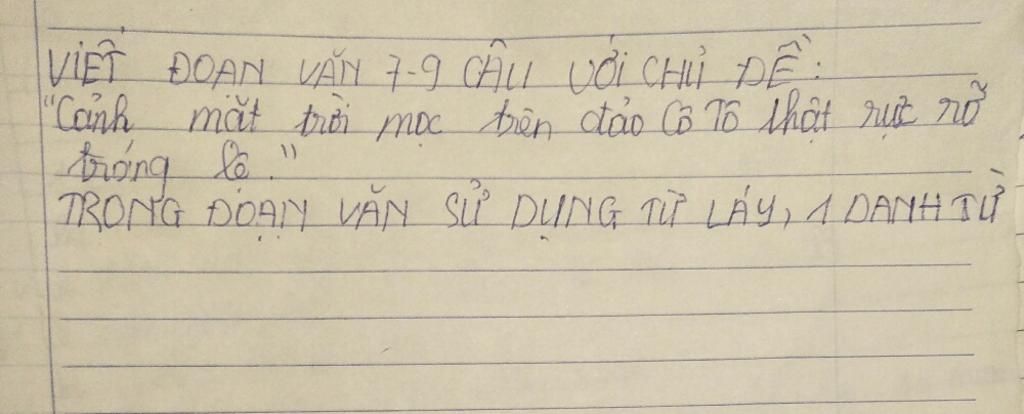 VIẾT ĐOẠN VĂN 7-9 CÂU VỚI CHỦ ĐỀ:
"Cảnh mặt trời mọc trên đảo Cô Tô thật rực rỡ
tráng lệ."
TRONG ĐOẠN VĂN SỬ DỤNG TỪ LÁY, 1 DANH TỪ